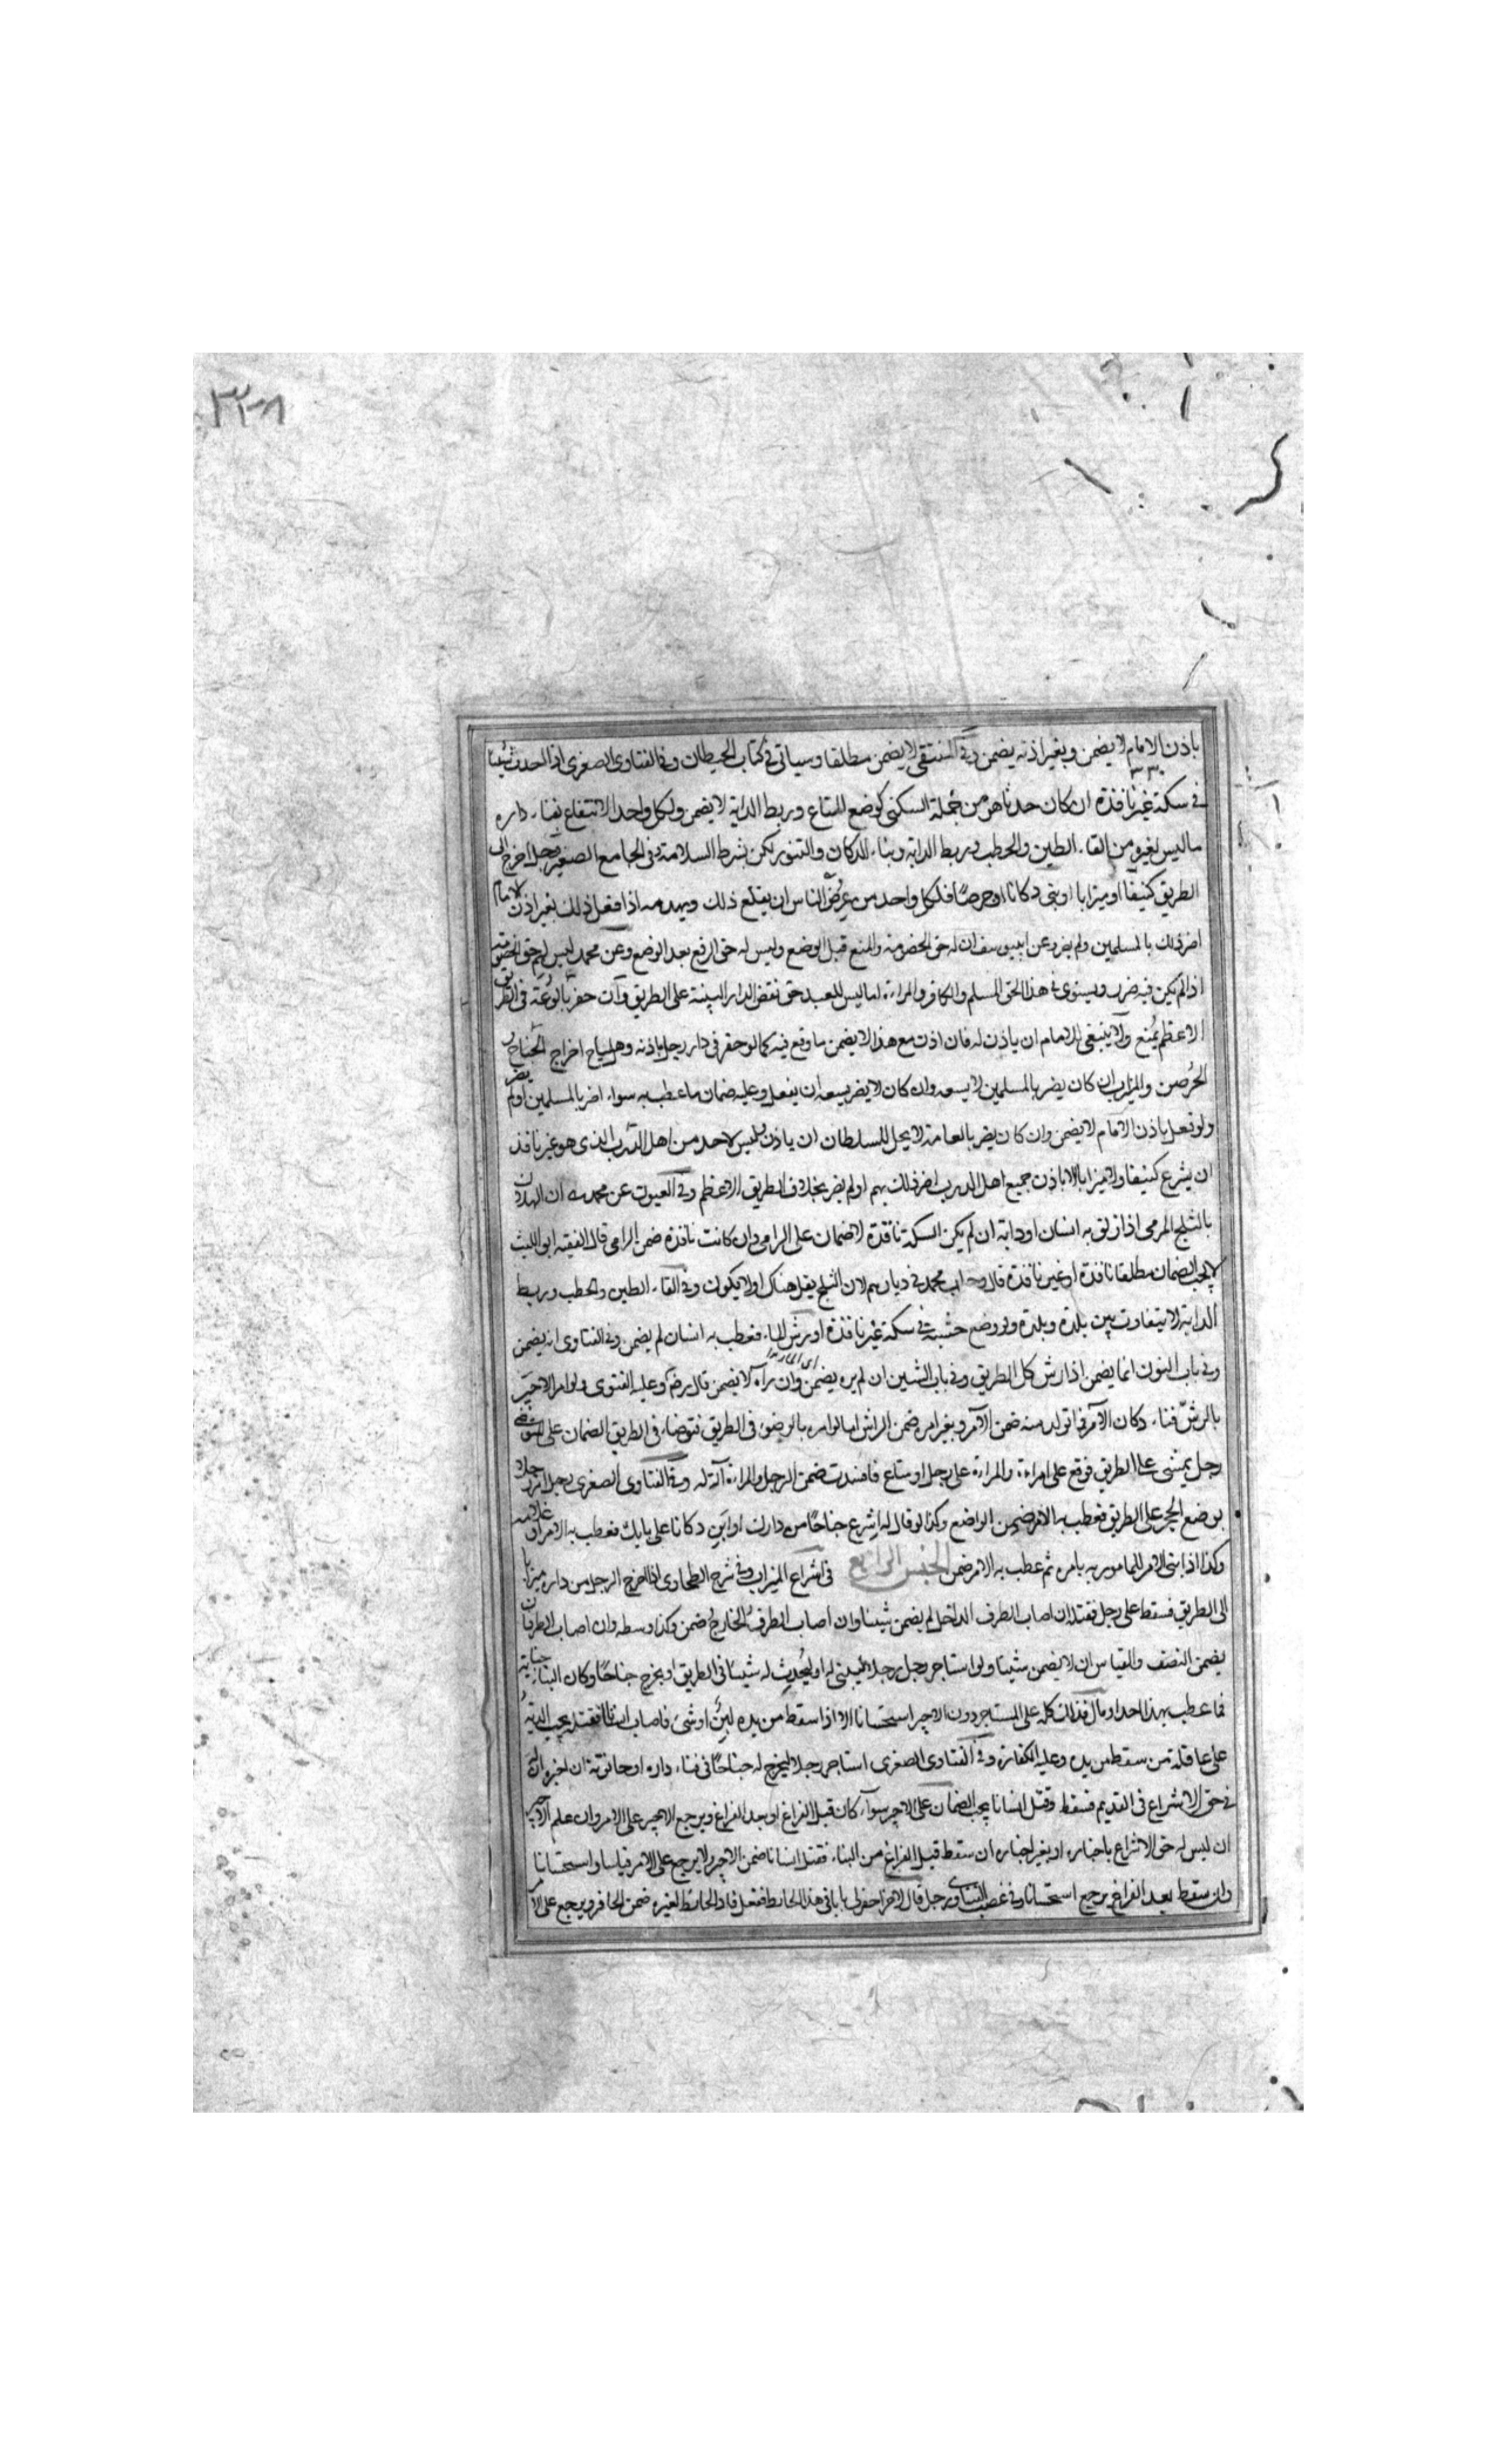 ٣٢٨
باذن الامام لا يضمن وبغير اذنه يضمن وفي المنتقى لا يضمن مطلقا وسياتي في كتاب الحيطان وفي الفتاوى الصغرى اذا احدث شيئا
في سكة غير نافذة ان كان حدثا هو من جملة السكنى كوضع المتاع وربط الدابة لا يضمن ولكل واحد الانتفاع بفناء داره
ما ليس لغيره من القاء الطين والحطب وربط الدابة وبناء الدكان والتنور لكن بشرط السلامة وفي الجامع الصغير رجل اخرج الى
الطريق كنيفا او ميزابا او بنى دكانا او جرصنا فلكل واحد من عرض الناس ان يقلع ذلك ويهدمه اذا فعل ذلك بغير اذن الامام
اضر ذلك بالمسلمين ولم يضر وعن ابي يوسف ان له حق الخصومة والمنع قبل الوضع وليس له حق الرفع بعد الوضع وعن محمد ليس لهم حق الخصومة
اذا لم يكن فيه ضرر ويستوي في هذا الحق المسلم والكافر والمراءة اما ليس للعبد حق نقض الدار المبنية على الطريق وان حفر بالوعة في الطريق
الاعظم يمنع ولا ينبغي للامام ان ياذن له فان اذن مع هذا لا يضمن ما وقع فيه كما لو حفر في دار رجل باذنه وهل يباح اخراج الجناح و
الجرصن والميزاب ان كان يضر بالمسلمين لا يسعه وان كان لا يضر يسعه ان يفعل وعليه ضمان ما عطب به سواء اضر بالمسلمين او لم يضر
ولو فعل باذن الامام لا يضمن وان كان يضر بالعامة لا يحل للسلطان ان ياذن وليس لاحد من اهل الدرب الذي هو غير نافذ
ان يشرع كنيفا ولا ميزابا الا باذن جميع اهل الدرب اضر ذلك بهم او لم يضر بخلاف الطريق الاعظم وفي العيون عن محمد
بالثلج المرمي اذا زلق به انسان او دابة ان لم يكن السكة نافذة لا ضمان على الرامي وان كانت نافذة ضمن الرامي قال الفقيه ابو الليث
لا يجب الضمان مطلقا نافذة او غير نافذة قال جواب محمد في ديارهم لان الثلج يقل هناك او لا يكون وفي القاء الطين والحطب وربط
الدابة لا يتفاوت بين بلدة وبلدة ولو وضع خشبة في سكة غير نافذة او رش الماء فعطب به انسان لم يضمن وفي الفتاوى انه يضمن
وفي باب النون انما يضمن اذا رش كل الطريق وفي باب الشين ان لم يره يضمن وان رآه لا يضمن قال وعليه الفتوى ولو امر الاجير
بالرش فناء دكان الآمر فما تولد منه ضمن الآمر وبغير امره ضمن الراش اما لو امره بالوضوء في الطريق فتوضاء في الطريق الضمان على المتوضئ
رجل يمشي على الطريق فوقع على امراءة والمراءة على رجل او متاع فافسدت ضمن الرجل والمراءة آلة له وفي الفتاوى الصغرى رجل امر رجلا
بوضع الحجر على الطريق فعطب به الامر ضمن الواضع وكذا لو قال له اشرع جناحا من دارك او ابن دكانا على بابك فعطب به الامر او غلامه
وكذا اذا بنى الامر للمامور به بامره ثم عطب به الامر ضمن الجنس الرابع في اشراع الميزاب وفي شرح الطحاوي اذا اخرج الرجل من داره ميزابا
الى الطريق فسقط على رجل فقتله ان اصاب الطرف الداخل لم يضمن شيئا وان اصاب الطرف الخارج ضمن وكذا وسطه وان اصاب الطرفان
يضمن النصف والقياس ان لا يضمن شيئا ولو استاجر رجل رجلا ليبني له او ليحدث له شيئا في الطريق او يخرج جناحا وكان البناء جناية
فما عطب بهذا احد او مال فذلك كله على المستاجر دون الاجير استحسانا الا اذا سقط من يده لبن او شيء فاصاب انسانا فقتله يجب الدية
على عاقلة من سقط من يده وعليه الكفارة وفي الفتاوى الصغرى استاجر رجلا ليخرج له جناحا في فناء داره او حانوته ان اخبره ان له
في حق الاشراع في القديم فسقط وقتل انسانا يجب الضمان على الاجير سواء كان قبل الفراغ او بعد الفراغ ويرجع الاجير على الامر وان علم الاجير
ان ليس له حق الاشراع باخباره او بغير اخباره ان سقط قبل الفراغ من البناء فقتل انسانا ضمن الاجير ولا يرجع على الامر قياسا واستحسانا
وان سقط بعد الفراغ يرجع استحسانا وفي غصب الفتاوى رجل قال لاخر احفر لي بابا في هذا الحائط ففعل فاذا الحائط لغيره ضمن الحافر ويرجع على الامر